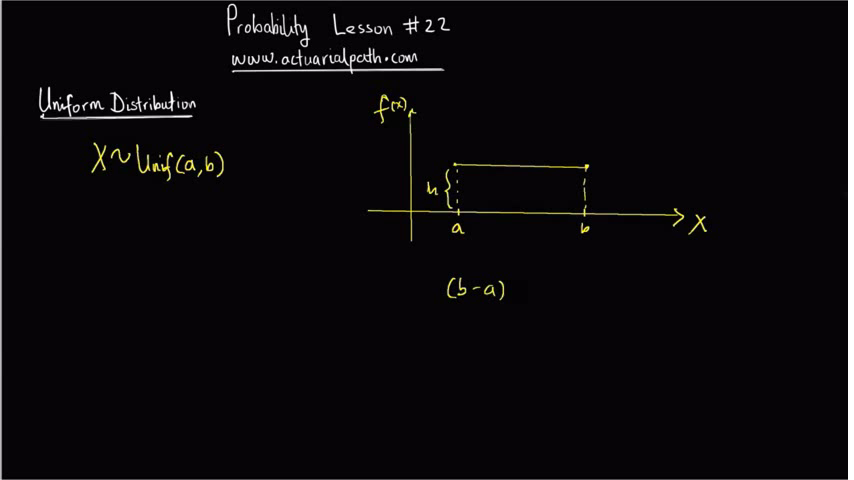 Probability Lesson #22
www.actuarialpath.com
Uniform Distribution
X~Unif(a,b)
f(x)
h
a b
X
(b-a)